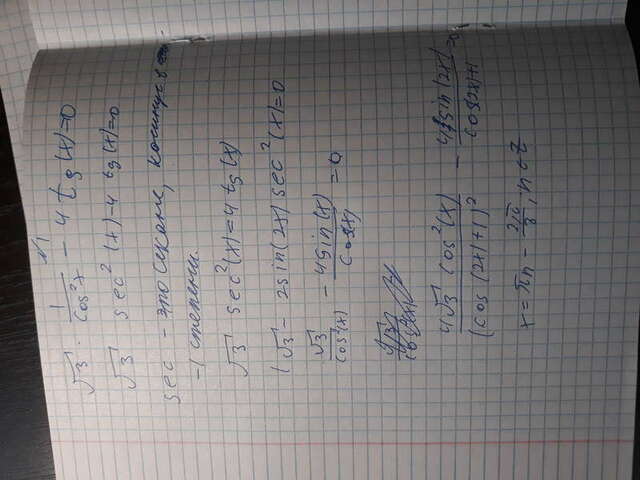 №1
√3 · 1/cos²x − 4 tg(x)=0
√3 sec²(x)−4 tg(x)=0
sec – это секанс, косинус в
-1 степени.
√3 sec²(x)=4 tg(x)
(√3 − 2sin(2x) sec²(x)=0
√3/cos²(x) − 4sin(x)/cos(x) = 0
4√3 cos²(x)/(cos(2x)+1)² − 4sin(2x)/cos(2x)+1 =0
x = πn − 2π/3; n∈Z